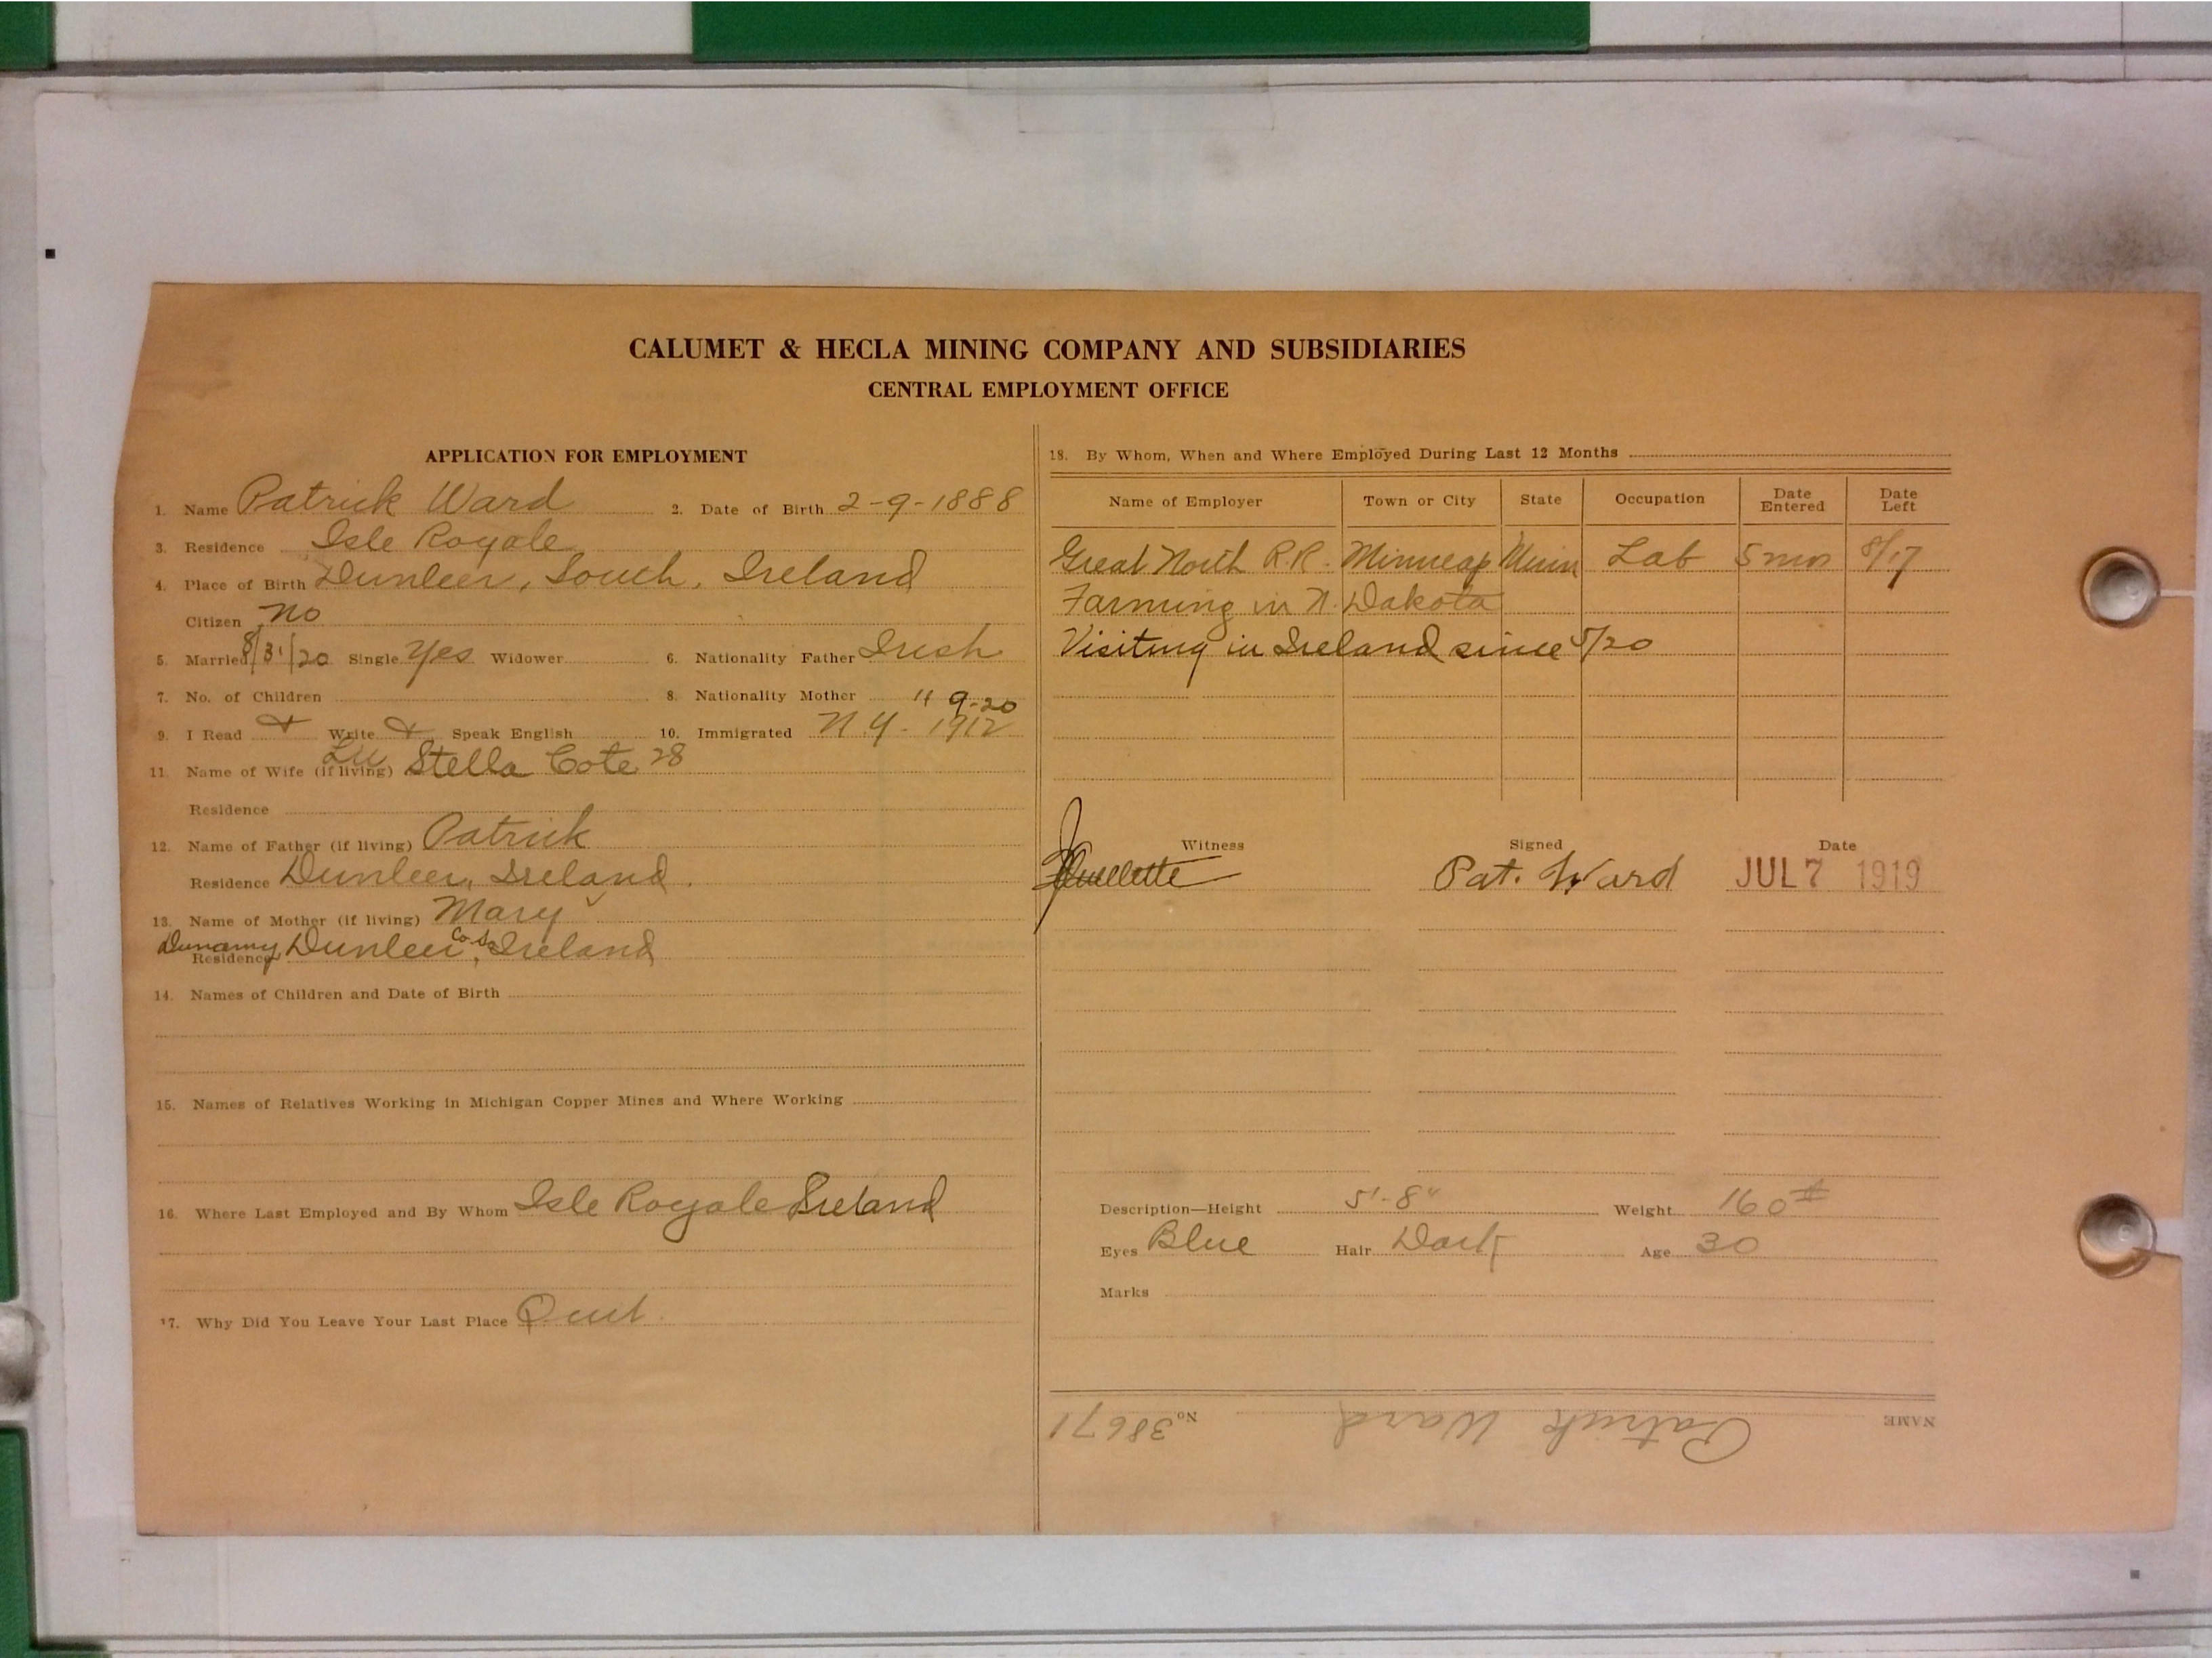 CALUMET & HECLA MINING COMPANY AND SUBSIDIARIES
CENTRAL EMPLOYMENT OFFICE
APPLICATION FOR EMPLOYMENT
1. Name Patrick Ward 2. Date of Birth 2-9-1888
3. Residence Isle Royale
4. Place of Birth Dunleer, Louth, Ireland
Citizen no
5. Married 8/31/20 Single Yes Widower
6. Nationality Father Irish
7. No. of Children
8. Nationality Mother " 9-20
9. I Read + Write + Speak English
10. Immigrated N.Y- 1912
11. Name of Wife (if living) Stella Cote 28
Residence
12. Name of Father (if living) Patrick
Residence Dunleer, Ireland.
13. Name of Mother (if living) Mary
Residence Dunleer, Ireland
14. Names of Children and Date of Birth
15. Names of Relatives Working in Michigan Copper Mines and Where Working
16. Where Last Employed and By Whom Isle Royale Ireland
17. Why Did You Leave Your Last Place Quit
18. By Whom, When and Where Employed During Last 12 Months
Name of Employer Town or City State Occupation Date Entered Date Left
Great North R.R. Minneap Minn Lab 5 mo 8/17
Farming in N. Dakota
Visiting in Ireland since 5/20
Witness Signed Date
Ouellette Pat. Ward JUL 7 1919
Description—Height 5'-8" Weight 160#
Eyes Blue Hair Dark Age 30
Marks
NAME Patrick Ward No. 38671